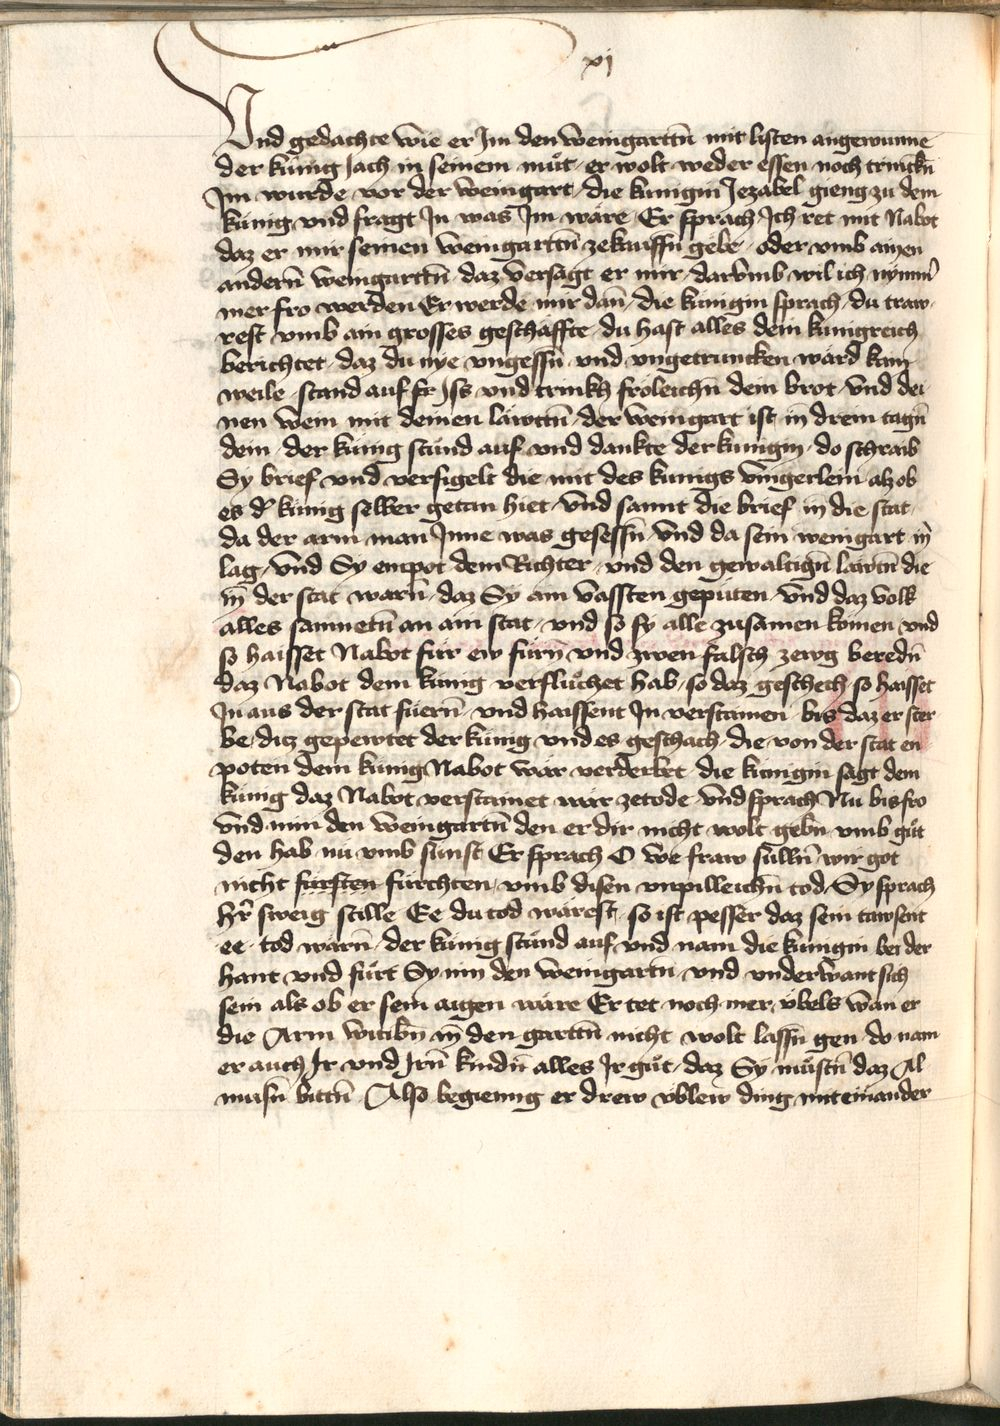 xj
Vnd gedachte wie er Jm den weingarttn̄ mit listen angewunne
der kúnig Jach in seinem můt · er wolt weder essen noch trinckn̄
Jm wurde vor der weingart · die kunigin Jezabel gieng zu dem
kúnig vnd fragt Jn was Jm wäre / Er sprach / Jch ret mit Nabot
daz er mir seinen weingarttn̄ zekauffn̄ gëbe · oder vmb ainen
andern̄ weingarttn̄ · daz versagt er mir · darvmb wil ich nymm̄
mer fro werden Er werde mir dan̄ · die kunigin sprach / du traw
rest vmb ain grosses geschäffte · du hast alles dein kunigreich
berichtet · daz du nye vngessn̄ · vnd vngetruncken ward kain
weile · stand auf Iss · vnd trinkh fröleichn̄ dein brot · vnd dei
nen wein mit deinen läwttn̄ · der weingart ist in drein tagn̄
dein · der kúnig stúnd auf vnd dankte der kunigin · do schraib
Sy brief vnd versigelt die mit des kunigs vingerlein alz ob
es d̄ kúnig selber getan hiet · vnd sannt die brief in die stat ·
da der arm man Jnne was gesessn̄ vnd da sein weingart in̄
lag / vnd Sy enpot dem Richter / vnd den gewaltign̄ läwtn̄ die
in̄ der stat warn̄ · daz Sy ain vassten gepúten · vnd daz volk
alles samnetn̄ an ain stat / vnd so sy alle zusamen kömen vnd
so haisset Nabot für ew fürn̄ vnd zwen falsch zewg beredn̄
daz Nabot dem kúnig verflůchet hab · so daz geschech · so haisset
Jn aus der stat füern̄ · vnd haissent Jn verstainen · bis daz er ster
be / ditz gepewtet der kúnig vnd es geschach · die von der stat en
poten dem kúnig Nabot wär verderbet · die kunigin sagt dem
kúnig daz Nabot verstainet wär zetode · vnd sprach Nu bis fro
vnd nim den weingartn̄ den er dir nicht wolt gebn̄ vmb gůt
den hab nú vmb súnst Er sprach O we fraw súlln̄ wir got
nicht fürsten fürchten · vmb disen vnpilleichn̄ tod / Sy sprach
hr̄ sweig stille Ee du tod wärest · so ist pesser daz sein tawsent
ee · tod wärn̄ · der kúnig stúnd auf vnd nam die kunigin bei der
hant vnd fůrt Sy nin den weingartn̄ · vnd vnderwant sich
sein als ob er sein aigen wäre Er tet noch mer vbels wan er
die Arm witibn̄ in̄ den garttn̄ nicht wolt lassn̄ gen · do nam
er auch Jr vnd Jrn̄ kindn̄ alles Jr gůt · daz Sy můstn̄ daz Al
musn̄ bittn̄ · Also begienng er drew vblew ding miteinander